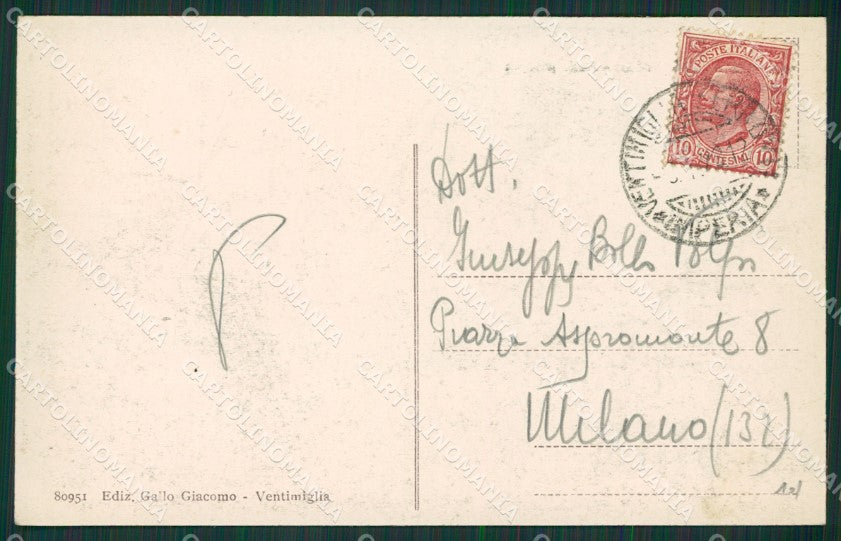 POSTE ITALIANE
10 CENTESIMI 10
VENTIMIGLIA
*IMPERIA*
Dott.
Giuseppe
Piazza Aspromonte 8
Milano (132)
80951 Ediz. Gallo Giacomo - Ventimiglia
CARTOLINOMANIA